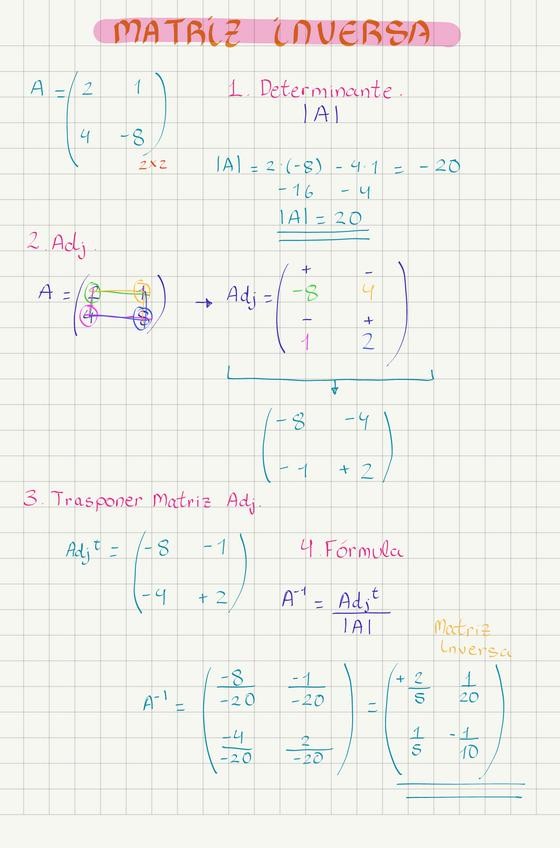 MATRIZ INVERSA
A = ( 2 1
4 -8 )
2x2
1. Determinante.
|A|
|A| = 2·(-8) - 4·1 = -20
-16 -4
|A| = 20
2. Adj.
A = ( 2 1
4 8 )
→ Adj = ( + -
-8 4
- +
1 2 )
( -8 -4
- -1 + 2 )
3. Trasponer Matriz Adj.
Adj^t = ( -8 -1
-4 + 2 )
4. Fórmula
A^-1 = Adj^t
|A|
Matriz
Inversa
A^-1 = ( -8/-20 -1/-20
-4/-20 2/-20 )
= ( + 2/5 1/20
1/5 - 1/10 )